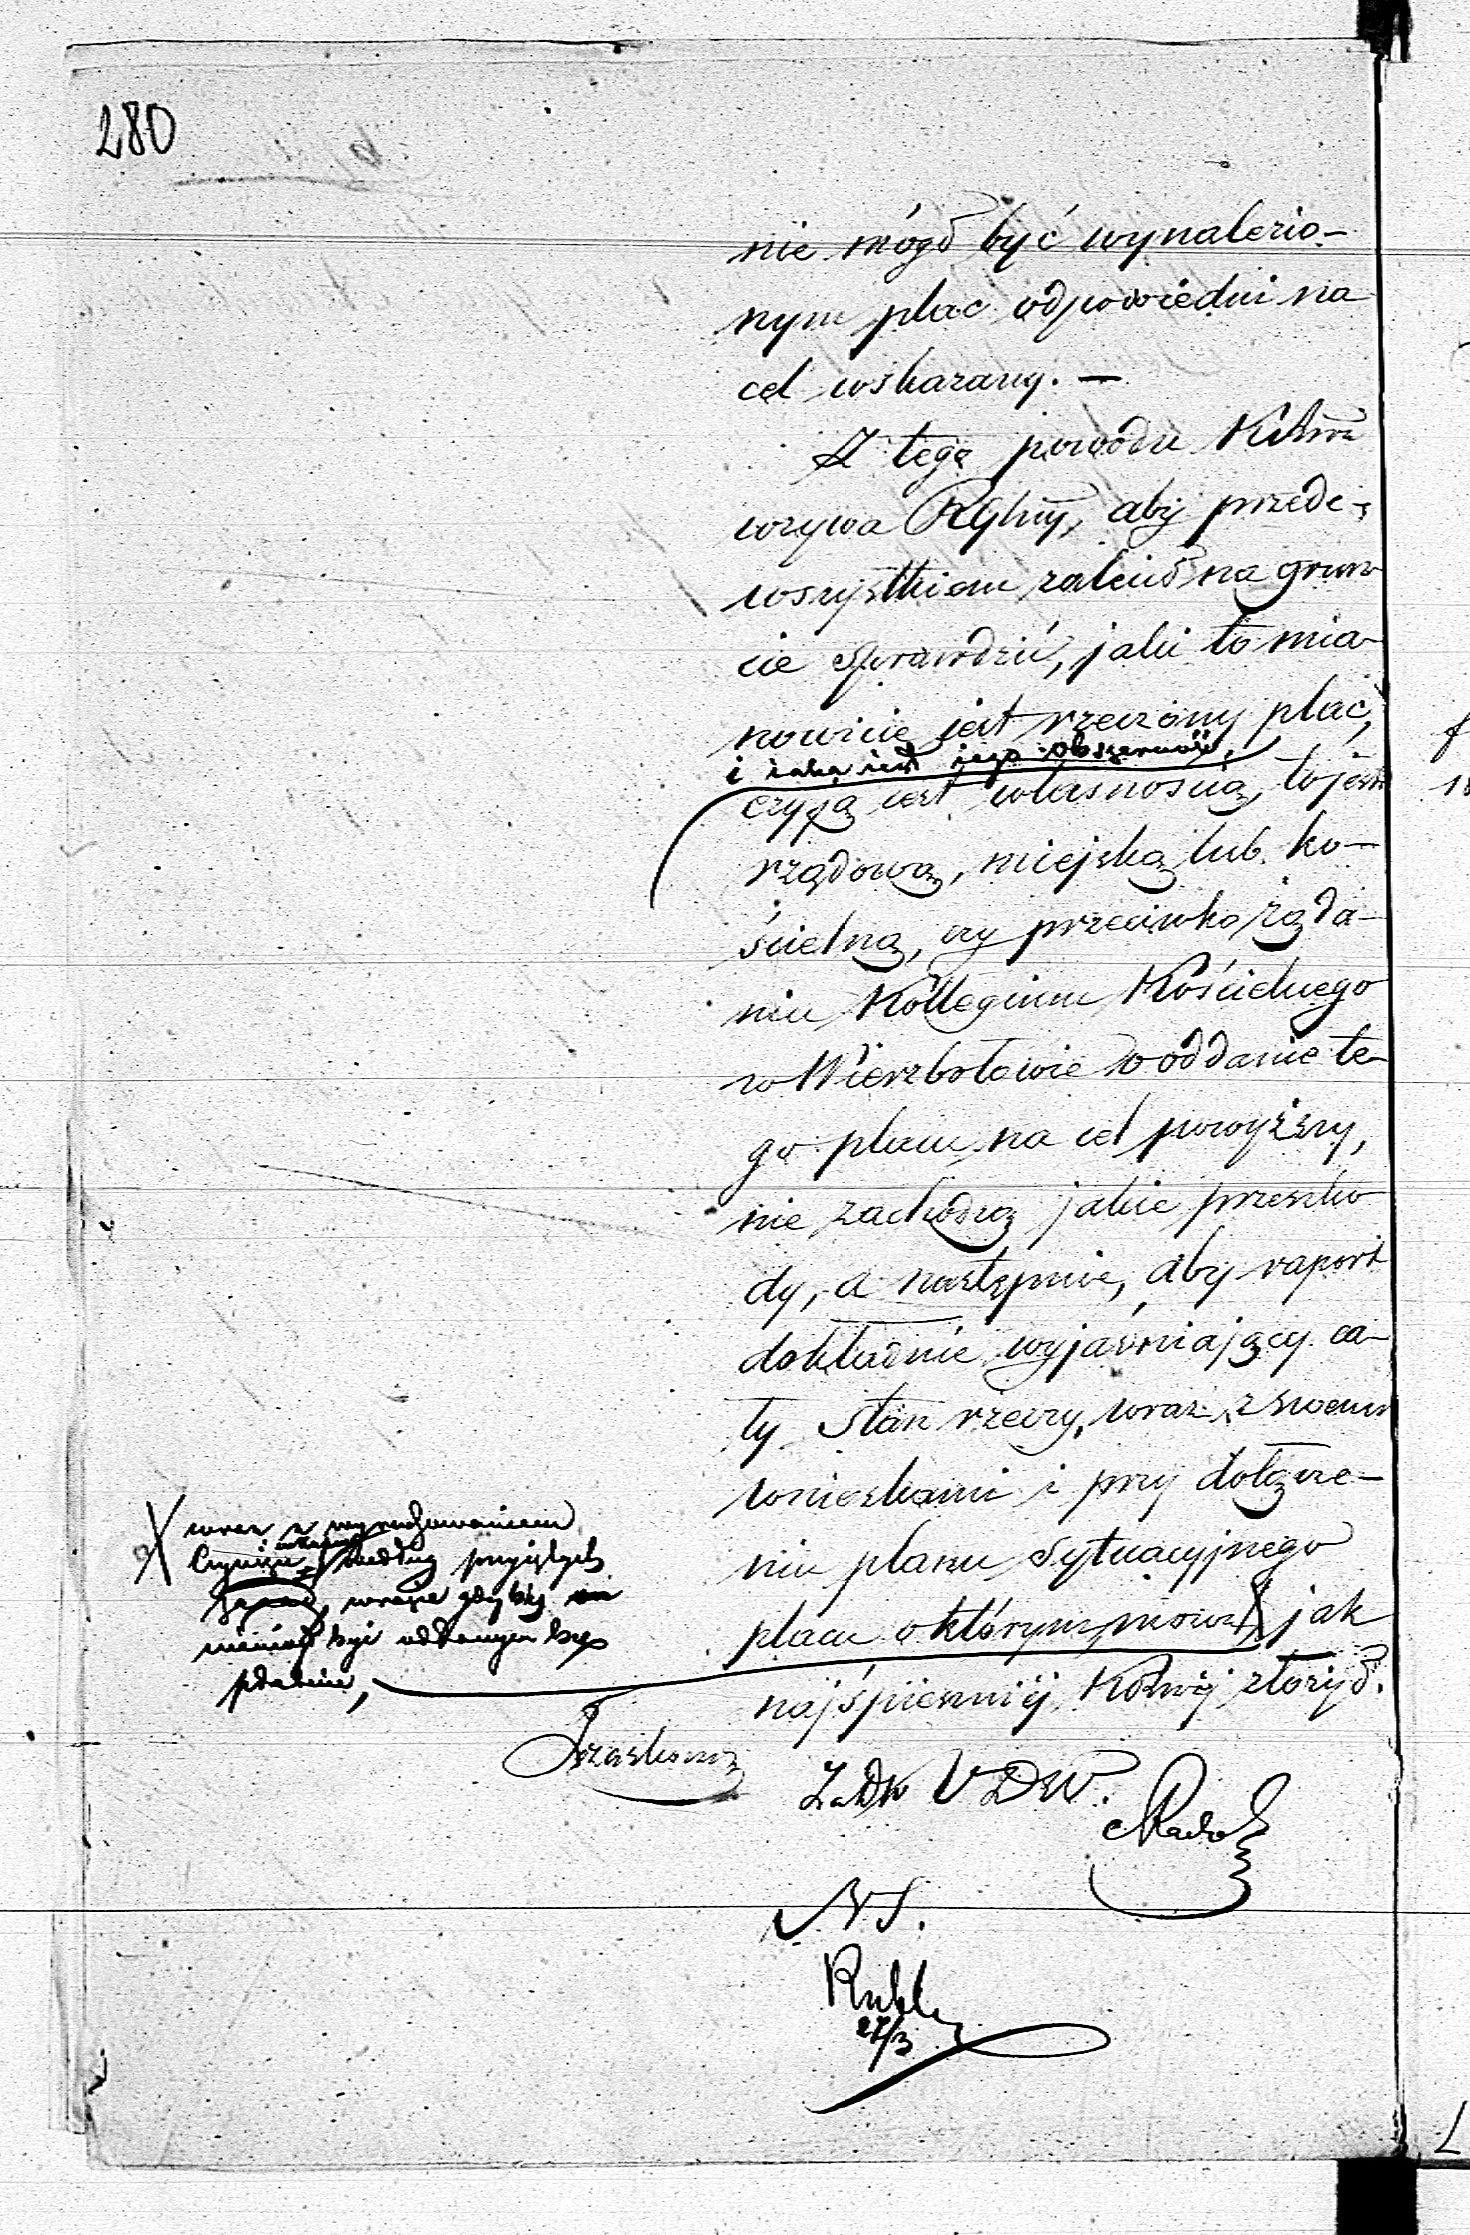 280
nie mógł być wynalezio-
nym plac odpowiedni na
cel wskazany. —
Z tego powodu KRSW
wzywa RGbny, aby przede-
wszystkiem zalecił na grun-
cie sprawdzić, jaki to mia-
nowicie jest rzeczony plac,
i jaka jest jego obszerność,
czyją jest własnością, to jest
rządową, miejską lub ko-
ścielną, czy przeciwko żąda-
niu Kollegium Kościelnego
w Wierzbołowie o oddanie te-
go placu na cel powyższy,
nie zachodzą jakie przeszko-
dy, a następnie, aby raport
dokładnie wyjaśniający ca-
ły stan rzeczy, wraz z swemi
wnioskami i przy dołącze-
niu planu sytuacyjnego
placu o którym mowa, jak
najśpieszniej złożył.
wraz z wyrachowaniem
czynszu według przyjętych
w razie gdyby
miał być oddanym bez
płatnie,
N S.
27/3